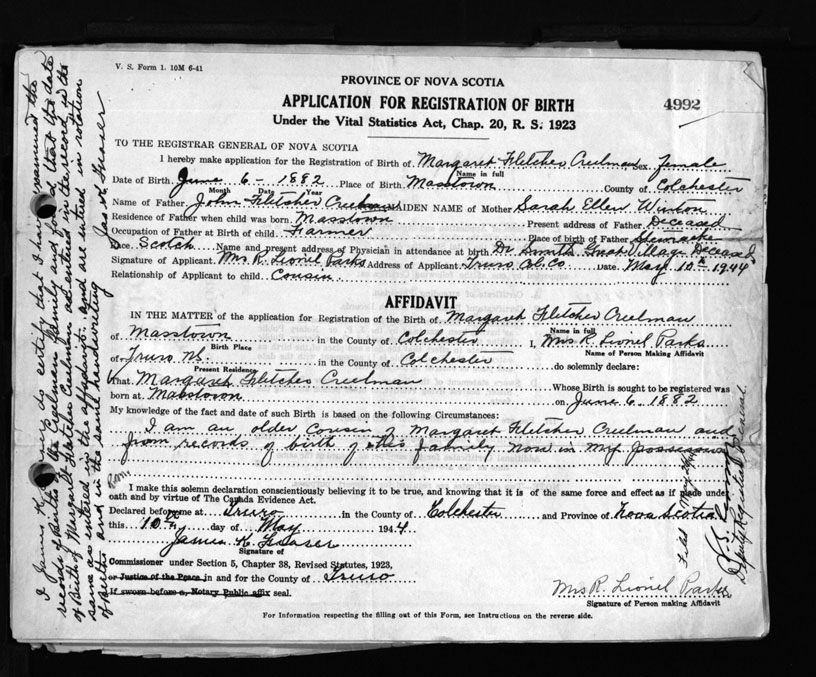 V. S. Form 1. 10M 6-41
PROVINCE OF NOVA SCOTIA
APPLICATION FOR REGISTRATION OF BIRTH
4992
Under the Vital Statistics Act, Chap. 20, R. S. 1923
TO THE REGISTRAR GENERAL OF NOVA SCOTIA
I hereby make application for the Registration of Birth of Margaret Fletcher Creelman Sex Female
Name in full
Date of Birth June 6 - 1882 Place of Birth Masstown County of Colchester
Month Date Year
Name of Father John Fletcher Creelman MAIDEN NAME of Mother Sarah Ellen
Residence of Father when child was born Masstown Present address of Father Deceased
Occupation of Father at Birth of child Farmer Place of birth of Father
Scotch Name and present address of Physician in attendance at birth Dr Smith Village Deceased
Signature of Applicant Mrs R. Lionel Parks Address of Applicant Truro Col. Co. Date May 10th 1944
Relationship of Applicant to child Cousin
AFFIDAVIT
IN THE MATTER of the application for Registration of the Birth of Margaret Fletcher Creelman
Name in full
of Masstown in the County of Colchester I, Mrs R. Lionel Parks
Birth Place Name of Person Making Affidavit
of Truro in the County of Colchester do solemnly declare:
Present Residence
That Margaret Fletcher Creelman Whose Birth is sought to be registered was
born at Masstown on June 6. 1882
My knowledge of the fact and date of such Birth is based on the following Circumstances:
I am an older Cousin of Margaret Fletcher Creelman and
from records of birth of this family now in my possession
I make this solemn declaration conscientiously believing it to be true, and knowing that it is of the same force and effect as if made under
oath and by virtue of The Canada Evidence Act.
Declared before me at Truro in the County of Colchester and Province of Nova Scotia
this 10th day of May 1944
James K Fraser
Signature of
Commissioner under Section 5, Chapter 38, Revised Statutes, 1923,
or Justice of the Peace in and for the County of Truro
If sworn before a Notary Public affix seal.
Mrs R. Lionel Parks
Signature of Person making Affidavit
For Information respecting the filling out of this Form, see Instructions on the reverse side.
I James K. Fraser do certify that I have examined the
records of Births of the Creelman family and find that the date
of Birth of Margaret Fletcher Creelman as entered in the record is the
same as entered in this affidavit and are entered in rotation
of Births and in the same handwriting James K Fraser
Deputy Registrar General